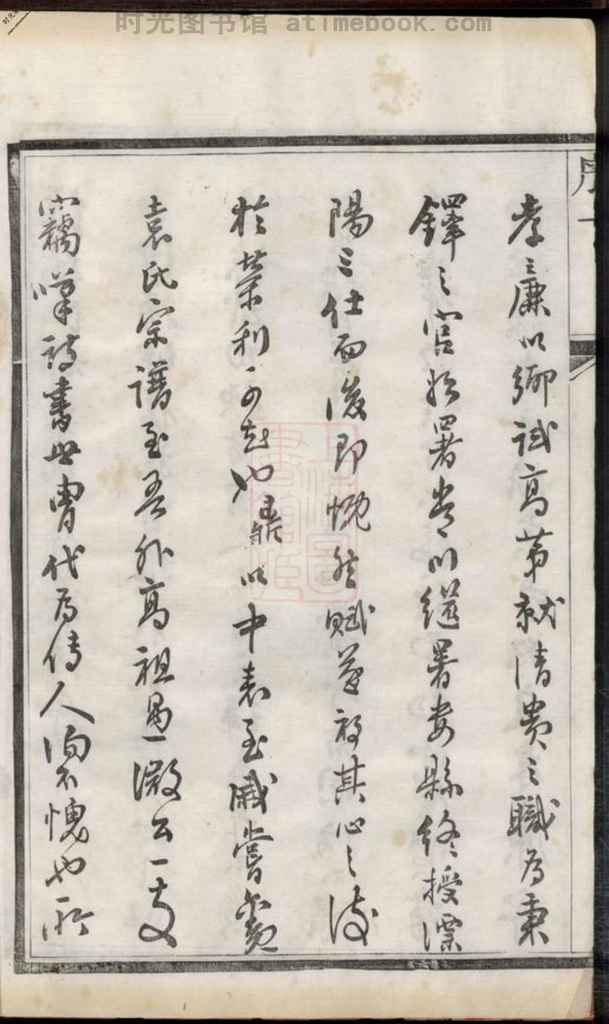 时光图书馆 atimebook.com
序
孝廉以鄉試高第就清貴之職為秉
鐸之官松署番以繼署婁縣終授漂
陽三仕而後即慨然賦遂初其心之淡
於榮利可知也鼎以中表至戚嘗覽
袁氏宗譜至吾外高祖愚微公一支
竊嘆詩書世冑代為傳人洵不愧也所